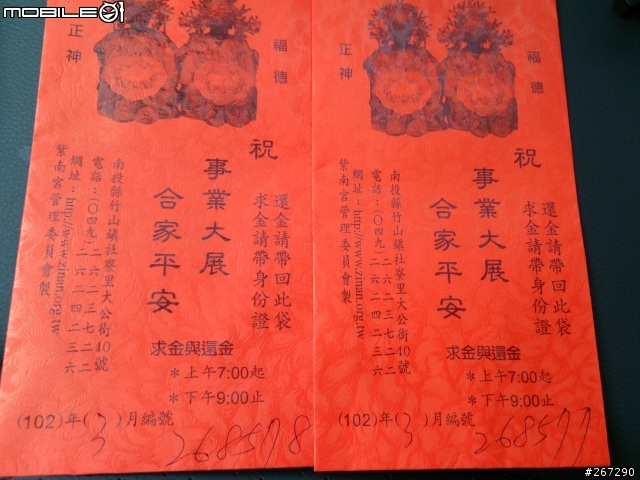 MOBILE01
福德
正神
祝
事業大展
合家平安
還金請帶回此袋
求金請帶身份證
南投縣竹山鎮社寮里大公街40號
電話：(〇四九)二六二三七二二
二六二四二三六
網址：http://www.ziman.org.tw
紫南宮管理委員會製
求金與還金
*上午7:00起
*下午9:00止
(102)年(3)月編號
268578
福德
正神
祝
事業大展
合家平安
還金請帶回此袋
求金請帶身份證
南投縣竹山鎮社寮里大公街40號
電話：(〇四九)二六二三七二二
二六二四二三六
網址：http://www.ziman.org.tw
紫南宮管理委員會製
求金與還金
*上午7:00起
*下午9:00止
(102)年(3)月編號
268577
#267290